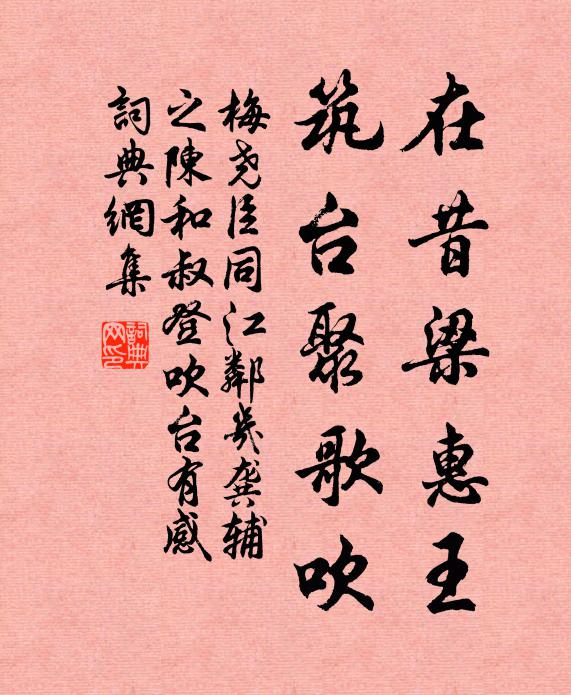 在昔梁惠王
筑台聚歌吹
梅尧臣同江鄰幾龔辅
之陳和叔登吹台有感
詞典網集
詞典网印